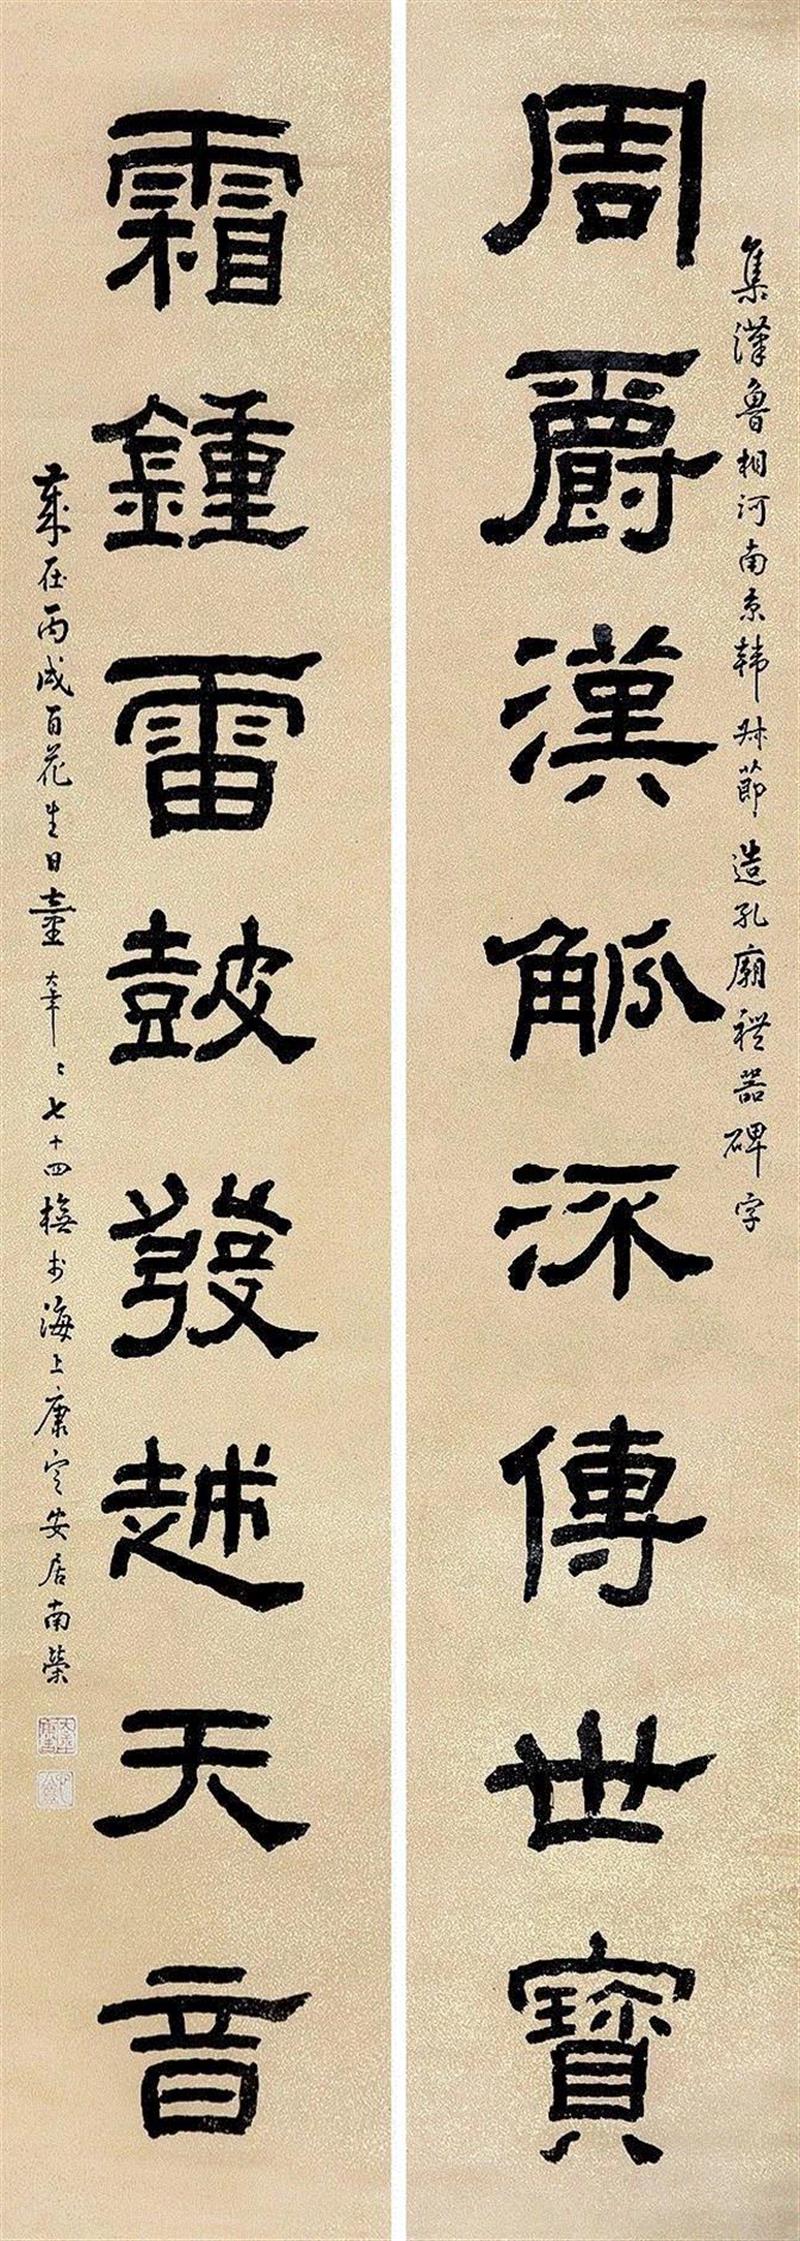 集漢魯相河南京韓叔節造孔廟禮器碑字
周爵漢觚深傳世寶
霜鍾雷鼓發越天音
歲在丙戌百花生日童大年年七十四楳於海上康定安居南榮